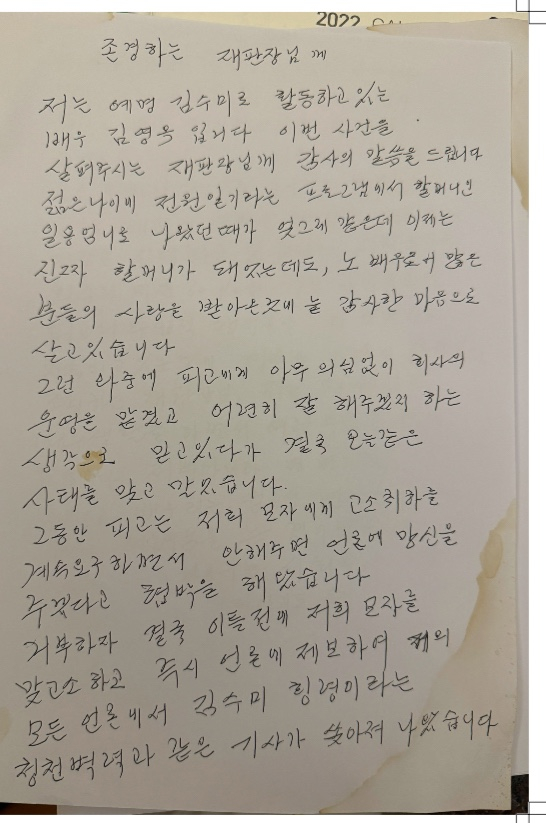 2022
존경하는 재판장님께
저는 예명 김수미로 활동하고있는
배우 김영옥 입니다 이번 사건을
살펴주시는 재판장님께 감사의 말씀을 드립니다
젊은나이에 전원일기라는 프로그램에서 할머니인
일용엄니로 나왔던때가 엊그제 같은데 이제는
진짜 할머니가 돼 있는데도, 노 배우로서 많은
분들의 사랑을 받아온것에 늘 감사한 마음으로
살고있습니다
그런 와중에 피고에게 아무 의심없이 회사의
운영을 맡겼고 어련히 잘 해주겠지 하는
생각으로 믿고있다가 결국 오늘같은
사태를 맞고 말았습니다.
그동안 피고는 저희 모자에게 고소취하를
계속요구하면서 안해주면 언론에 망신을
주겠다고 협박을 해 왔습니다
거부하자 결국 이틀전에 저희 모자를
맞고소 하고 즉시 언론에 제보하여
모든 언론에서 김수미 횡령이라는
청천벽력과 같은 기사가 쏟아져 나왔습니다